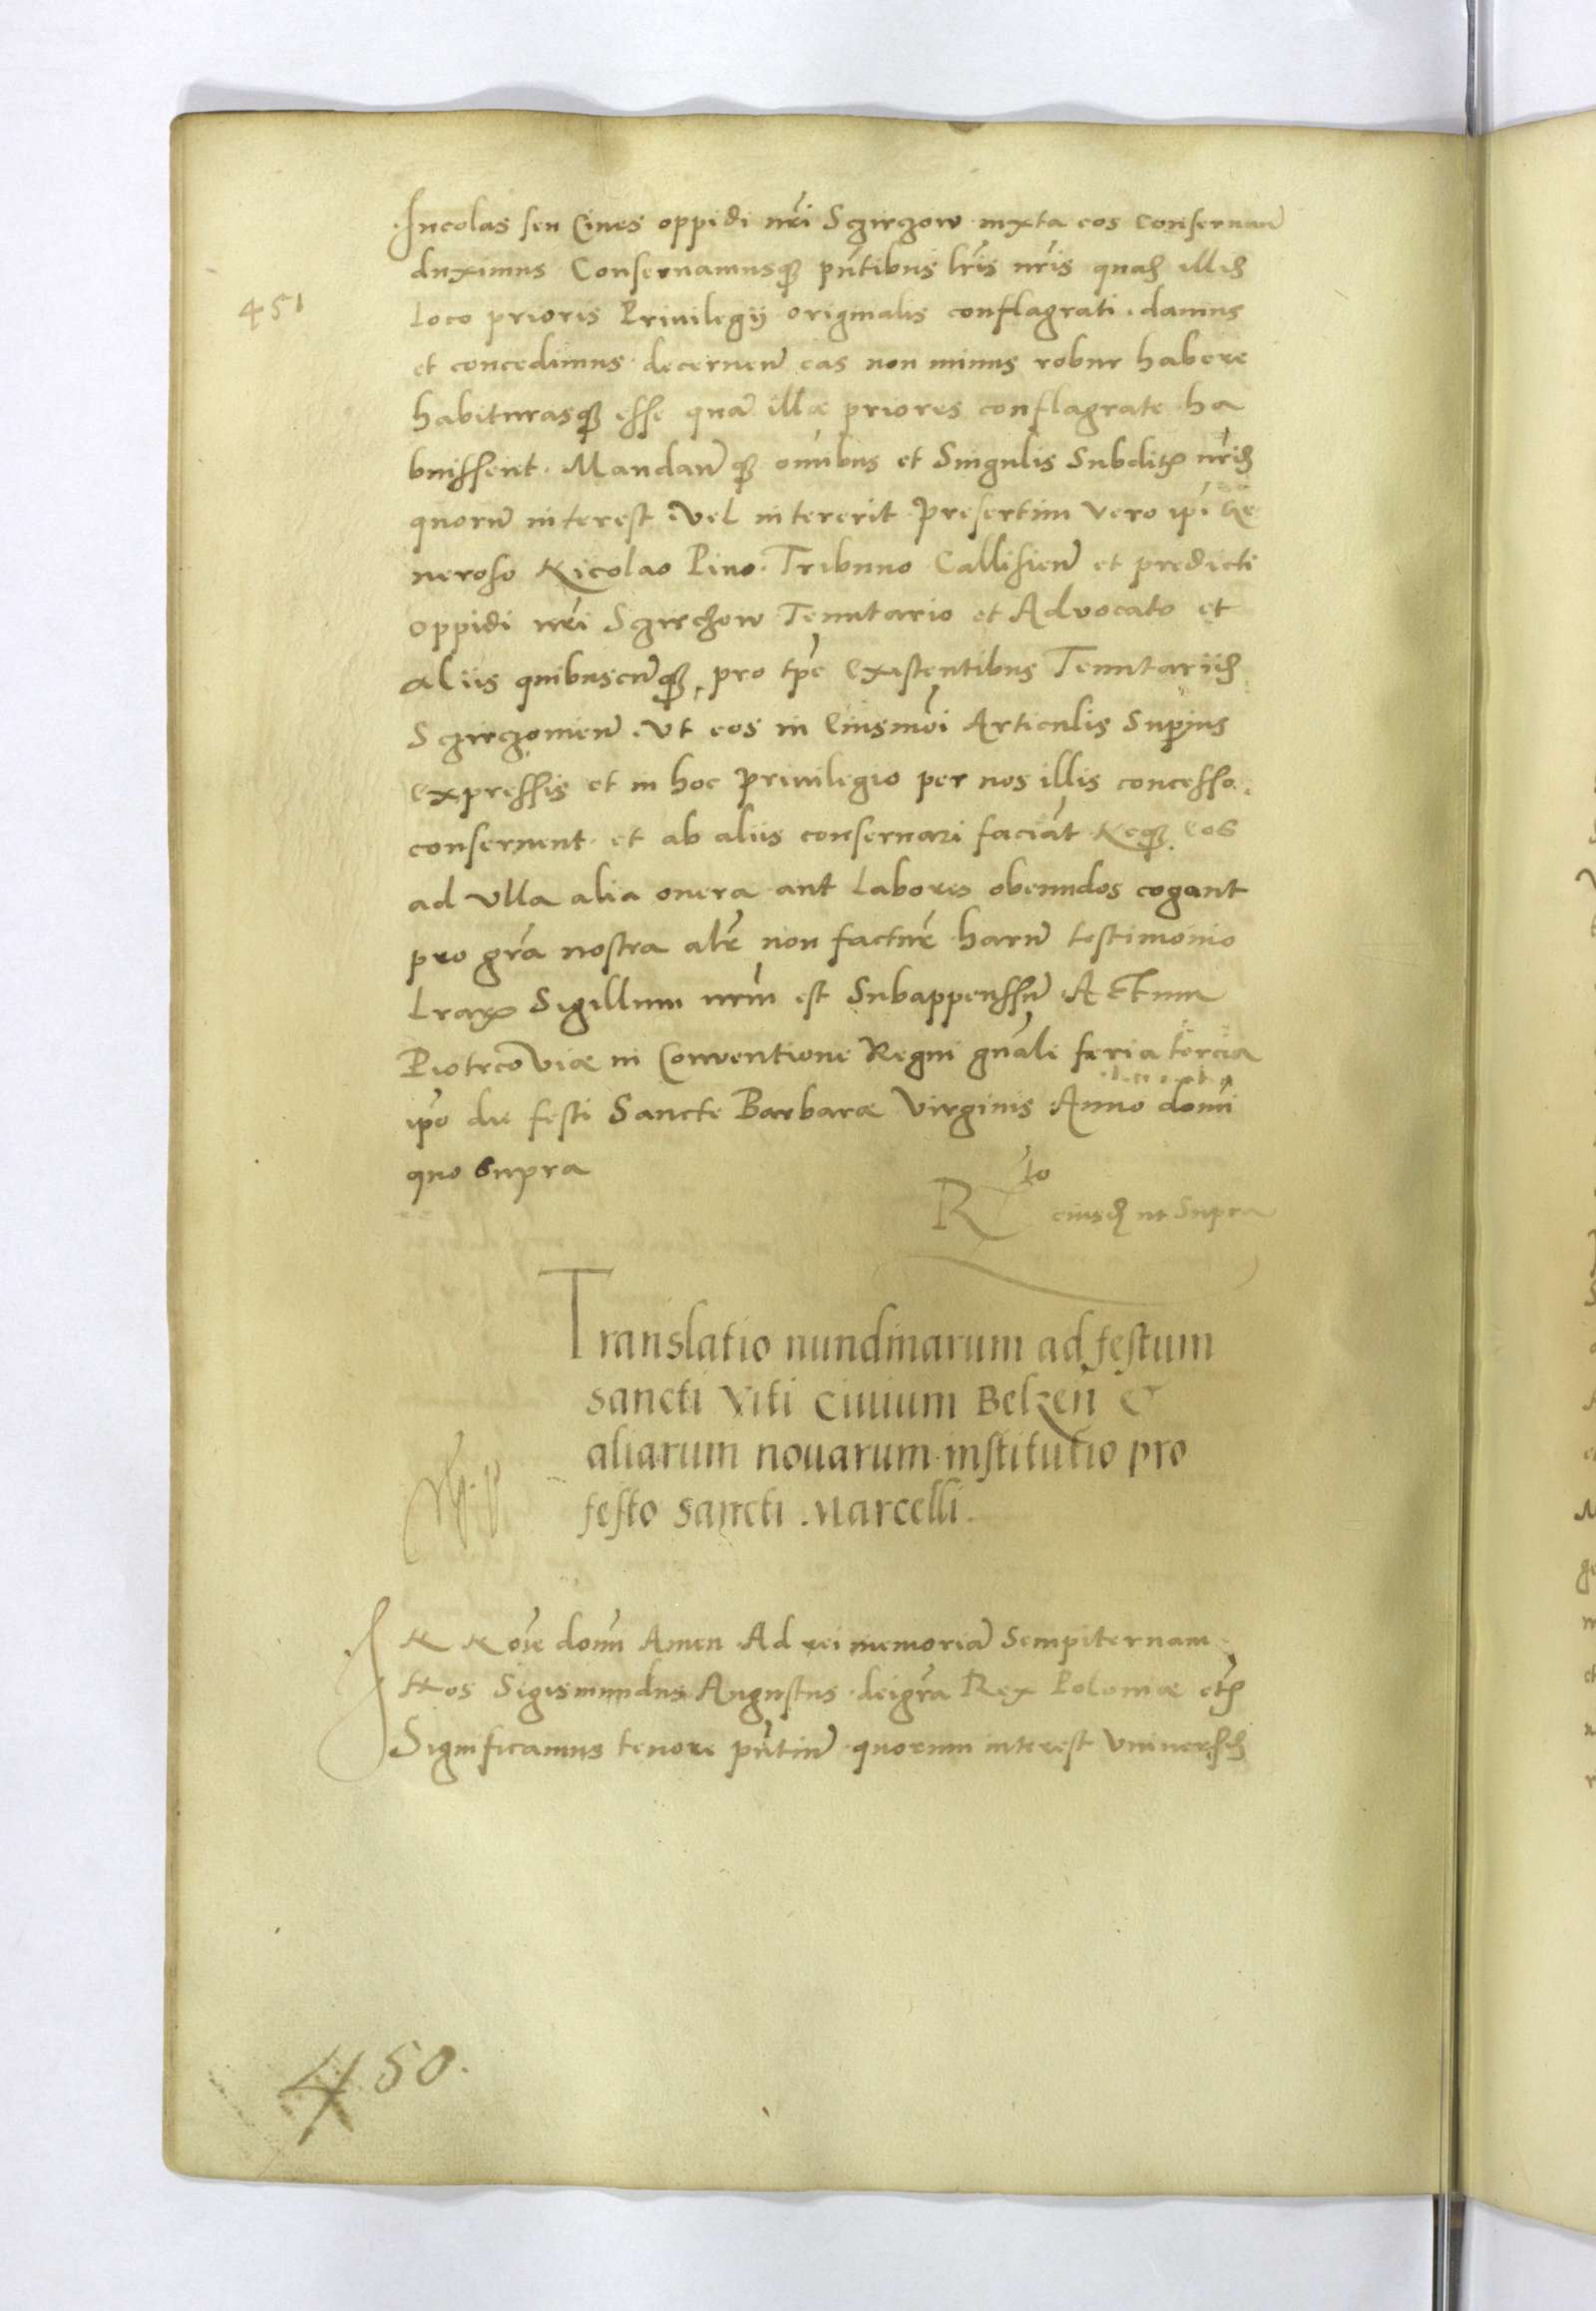 Incolas seu Ciues oppidi nrı̄ Szirczow iuxta eos Conseruan̄
duximus Conseruamusq₃ pn̄tibus lrı̄s nrı̄s quas illis
451
Loco prioris Priuilegij originalis conflagrati damus
et concedimus decernen̄ eas non minus robur habere
habiturasq₃ esse quā illæ priores conflagrate ha
buissent. Mandan̄ q₃ om̄ibus et Singulis Subditis nrı̄s
quorū interest vel intererit presertim vero ip̄i Ge
neroso Nicolao Pino Tribuno Callisien̄ et predicti
oppidi nrı̄ Szirchow Tenutario et Advocato et
aliis quibuscūq₃ pro tp̄e Existentibus Tenutariis
Szirczouien̄ Vt eos in Eiusmōi Articulis Supius
Expressis et in hoc Priuilegio per nos illis concesso
conseruent et ab aliis conseruari faciāt Neq₃ eos
ad Vlla alia onera aut Labores obeundos cogant
pro grā nostra alr̄ non factur̄ harū testimonio
Lrar Sigillum nrm̄ est Subappenssū Actum
PiotrcoViæ in Conventione Regni gn̄ali feria tercia
ip̄o die festi Sancte Barbaræ Virginis Anno domı̄
quo Supra
R to eiusd ut Supra
Translatio nundinarum ad festum
sancti Viti Ciuium Belzen̄ &
aliarum nouarum institutio pro
festo sancti Marcelli.
IN Noı̄e domı̄ Amen Ad rei memoriā Sempiternam
Nos Sigismundus Augustus dei grā Rex Poloniæ etc
Significamus tenore pn̄tiū quorum interest Vniuersis
450.